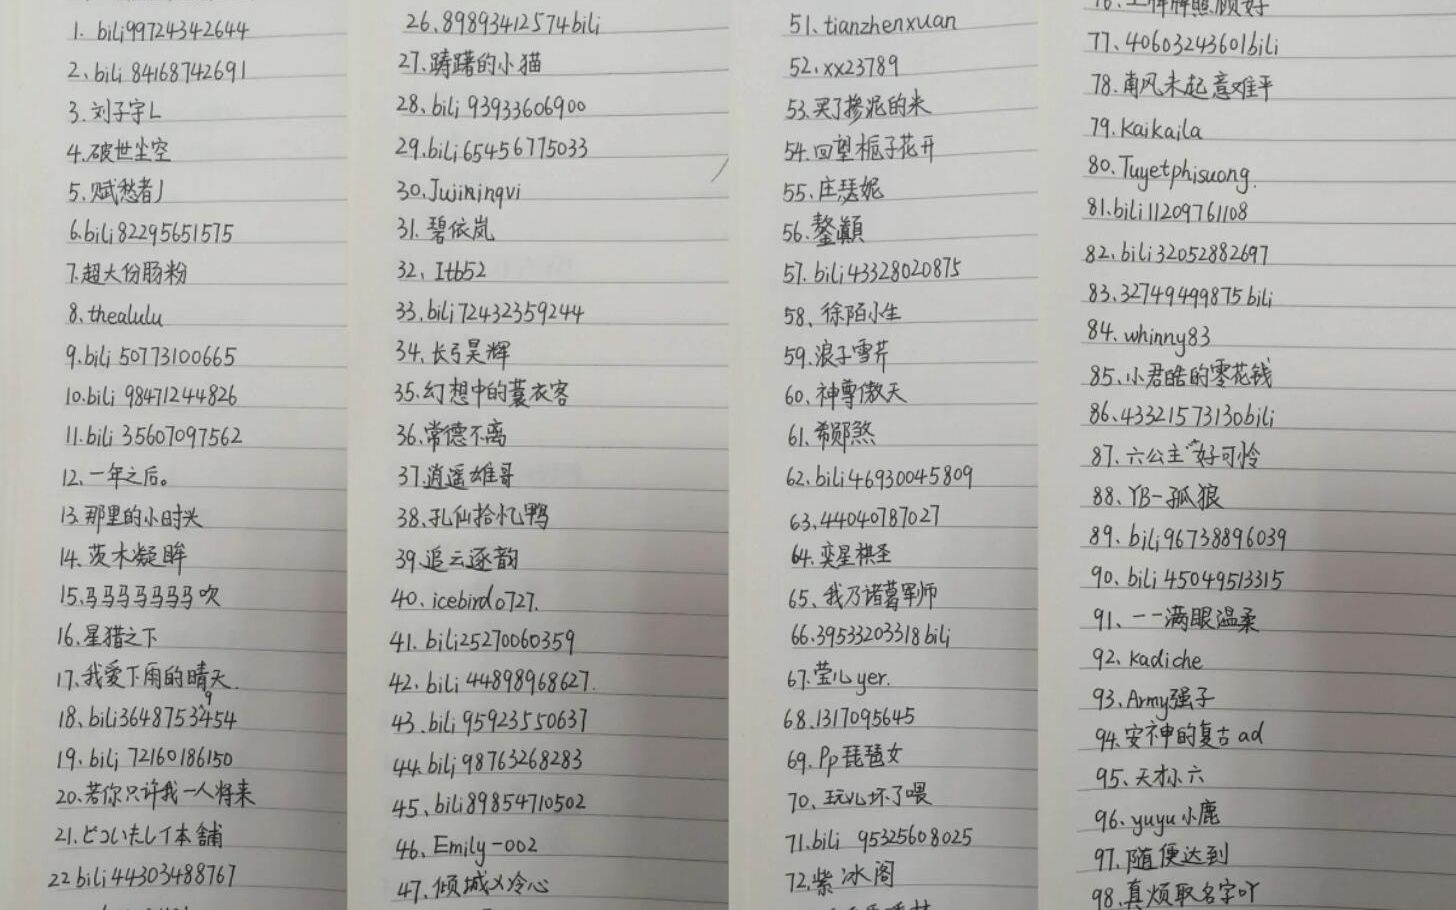 1. bili99724342644
2. bili 84168742691
3. 刘子宇L
4. 破世尘空
5. 赋愁者J
6. bili82295651575
7. 超大份肠粉
8. thealulu
9. bili 50773100665
10. bili 98471244826
11. bili 35607097562
12. 一年之后。
13. 那里的小时光
14. 茨木凝眸
15. 马马马马马马马吹
16. 星猎之下
17. 我爱下雨的晴天.
18. bili36487539454
19. bili 72160186150
20. 若你只许我一人将来
21. どついたしT本舗
22 bili 44303488767
26、89893412574bili
27. 踌躇的小猫
28. bili 93933606900
29. bili65456775033
30. Jujiningvi
31. 碧依岚
32、Itb52
33. bili72432359244
34、长弓昊辉
35. 幻想中的蓑衣客
36. 常德不离
37. 逍遥雄哥
38、孔仙拾忆鸭
39. 追云逐韵
40、icebird0727.
41. bili25270060359
42. bili 44898968627.
43. bili 95923550637
44. bili 98763268283
45、bili89854710502
46、Emily-002
47、倾城乂冷心
51、tianzhenxuan
52. xx23789
53、买了掺泥的米
54. 回望栀子花开
55、庄瑟妮
56. 鏊顚
57. bili43328020875
58、徐陌小生
59. 浪子雪芹
60、神尊傲天
61. 希郧煞
62. bili46930045809
63. 44040787027
64. 奕星棋圣
65、我乃诸葛军师
66. 39533203318bili
67. 莹儿yer.
68. 1317095645
69. Pp琵琶女
70、玩儿坏了喂
71. bili 95325608025
72. 紫冰阁
76. 王牌牌照顾好
77. 40603243601bili
78. 南风未起意难平
79. Kaikaila
80. Tuyetphisuong.
81. bili11209761108
82. bili32052882697
83. 32749499875bili
84. whinny83
85、小君皓的零花钱
86. 43321573130bili
87. 六公主~好可怜
88. YB-孤狼
89. bili96738896039
90. bili 45049513315
91. 一一满眼温柔
92. Kadiche
93. Army强子
94. 安神的复古ad
95、天才小六
96、yuyu小鹿
97. 随便达到
98. 真烦取名字吖